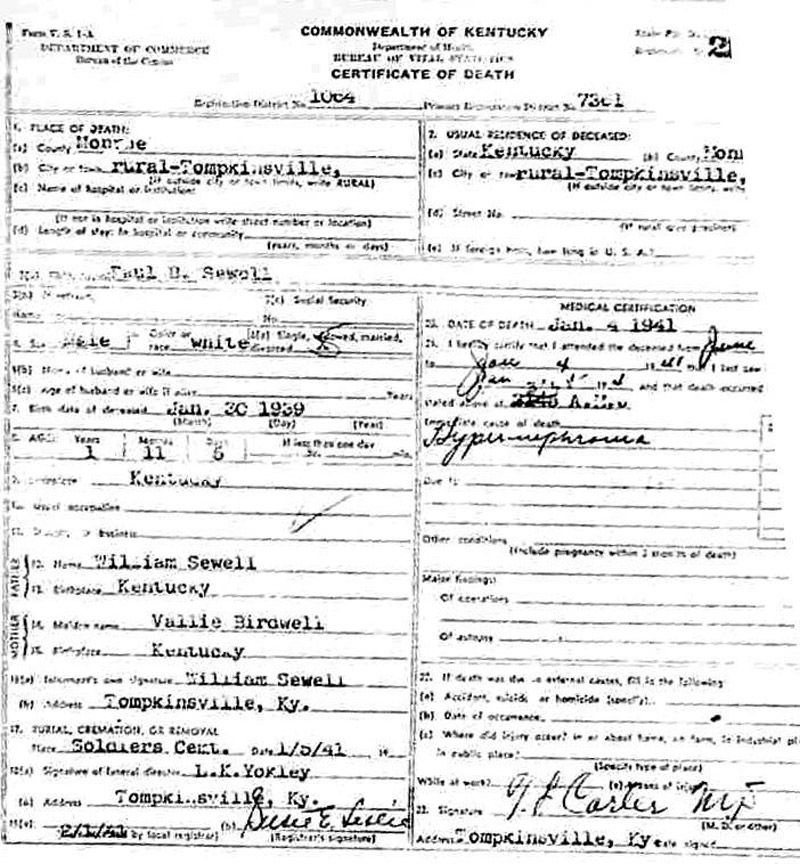 Form V. S. 1-A
DEPARTMENT OF COMMERCE
Bureau of the Census
COMMONWEALTH OF KENTUCKY
Department of Health
BUREAU OF VITAL STATISTICS
CERTIFICATE OF DEATH
2
Registration District No. 1064 Primary Registration District No. 7361
1. PLACE OF DEATH:
(a) County Monroe
(b) City or town rural-Tompkinsville,
(If outside city or town limits, write RURAL)
(c) Name of hospital or institution:
(If not in hospital or institution write street number or location)
(d) Length of stay: In hospital or community
(Years, months or days)
2. USUAL RESIDENCE OF DECEASED:
(a) State Kentucky (b) County Mon
(c) City or town rural-Tompkinsville,
(If outside city or town limits, write
(d) Street No.
(e) If foreign born, how long in U. S. A.?
Sewell
3(c) Social Security
No.
4. Sex Male Color or race white Single, widowed, married, divorced
6(b) Name of husband or wife
6(c) Age of husband or wife if alive Years
7. Birth date of deceased Jan. 30 1939
(Month) (Day) (Year)
8. AGE: Years Months Days If less than one day
1 11 5 hr. min.
9. Birthplace Kentucky
10. Usual occupation
11. Industry or business
FATHER
12. Name William Sewell
13. Birthplace Kentucky
MOTHER
14. Maiden name Vallie Birdwell
15. Birthplace Kentucky
16(a) Informant's own signature William Sewell
(b) Address Tompkinsville, Ky.
17. BURIAL, CREMATION, OR REMOVAL
Place Soldiers Cemt. Date 1/5/41 19
18(a) Signature of funeral director L.K. Yokley
(b) Address Tompkinsville, Ky.
by local registrar) (b)
(Registrar's signature)
MEDICAL CERTIFICATION
20. DATE OF DEATH Jan. 4 1941
21. I hereby certify that I attended the deceased from June
to Jan 4 19 41 that I last saw
and that death occurred
stated above at
Immediate cause of death
Hypernephroma
Due to
Other conditions
(Include pregnancy within 3 months of death)
Major findings:
Of operations
Of autopsy
22. If death was due to external causes, fill in the following
(a) Accident, suicide or homicide (specify)
(b) Date of occurrence
(c) Where did injury occur? in or about home, on farm, in industrial pl
in public place?
(Specify type of place)
While at work? (e) Means of injury
23. Signature Carter MD
(M. D. or other)
Address Tompkinsville, Ky Date signed